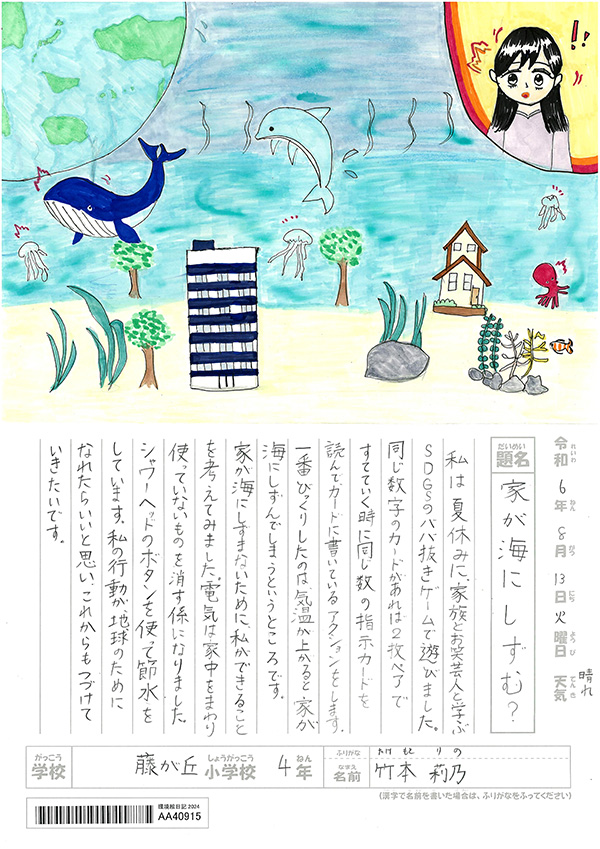 !!
令和 6年 8月 13日 火曜日 天気 晴れ
れいわ ねん がつ にち ようび てんき
だいめい
題名 家が海にしずむ?
私は夏休みに、家族とお笑芸人と学ぶ
SDGSのババ抜きゲームで遊びました。
同じ数字のカードがあれば2枚ペアで
すてていく時に同じ数の指示カードを
読んでカードに書いているアクションをします。
一番びっくりしたのは、気温が上がると家が
海にしずんでしまうというところです。
家が海にしずまないために、私ができること
を考えてみました。電気は家中をまわり
使っていないものを消す係になりました。
シャワーヘッドのボタンを使って節水を
しています。私の行動が、地球のために
なれたらいいと思い、これからもつづけて
いきたいです。
がっこう しょうがっこう ねん
学校 藤が丘 小学校 4年
ふりがな たけもと りの
なまえ
名前 竹本 莉乃
(漢字で名前を書いた場合は、ふりがなをふってください)
環境絵日記 2024
AA40915